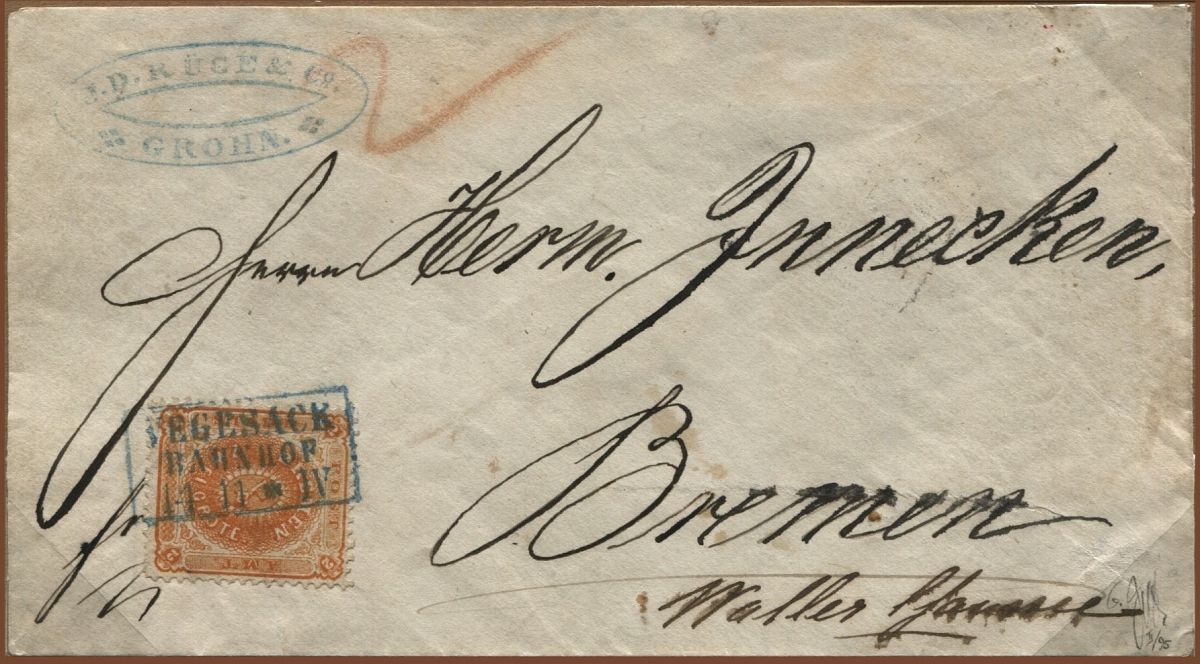 J.D. RÜGE & Co.
GROHN.
Herrn Herm. Innecken,
Bremen
Waller Chaussee
fr
VEGESACK
BAHNHOF
14 11 * IV
II/95